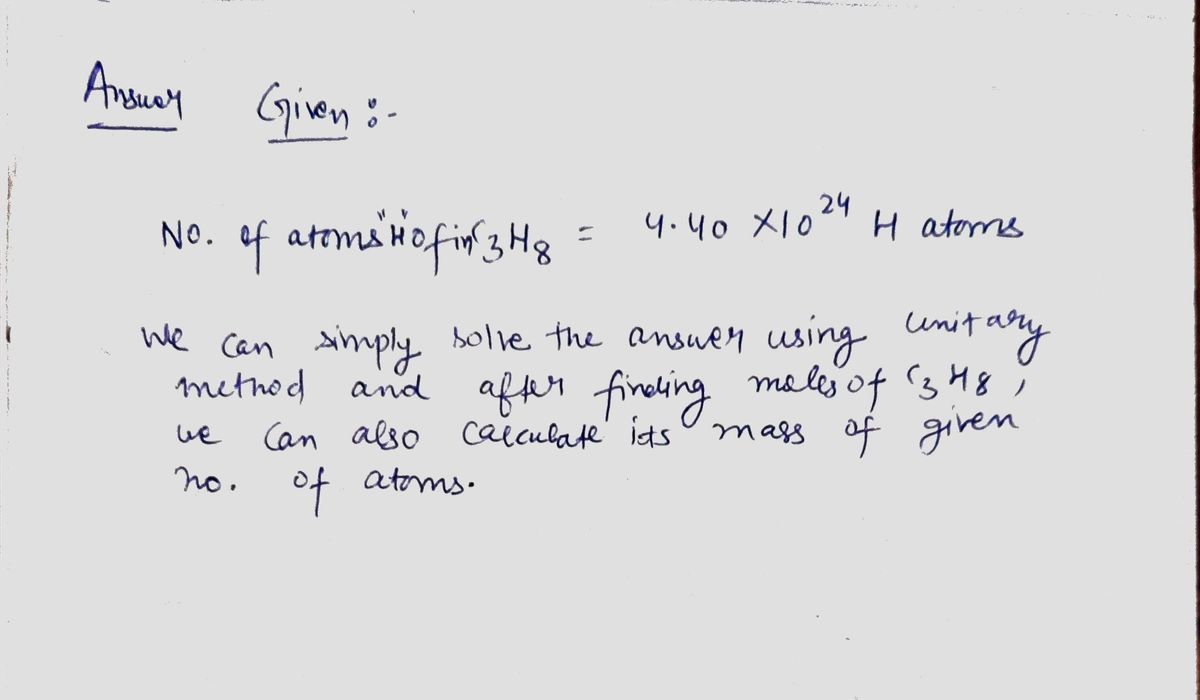 Answer Given :-
No. of atoms "H" of in C3H8 = 4.40 × 10^24 H atoms
We can simply solve the answer using unitary
method and after finding moles of C3H8,
we can also calculate its mass of given
no. of atoms.